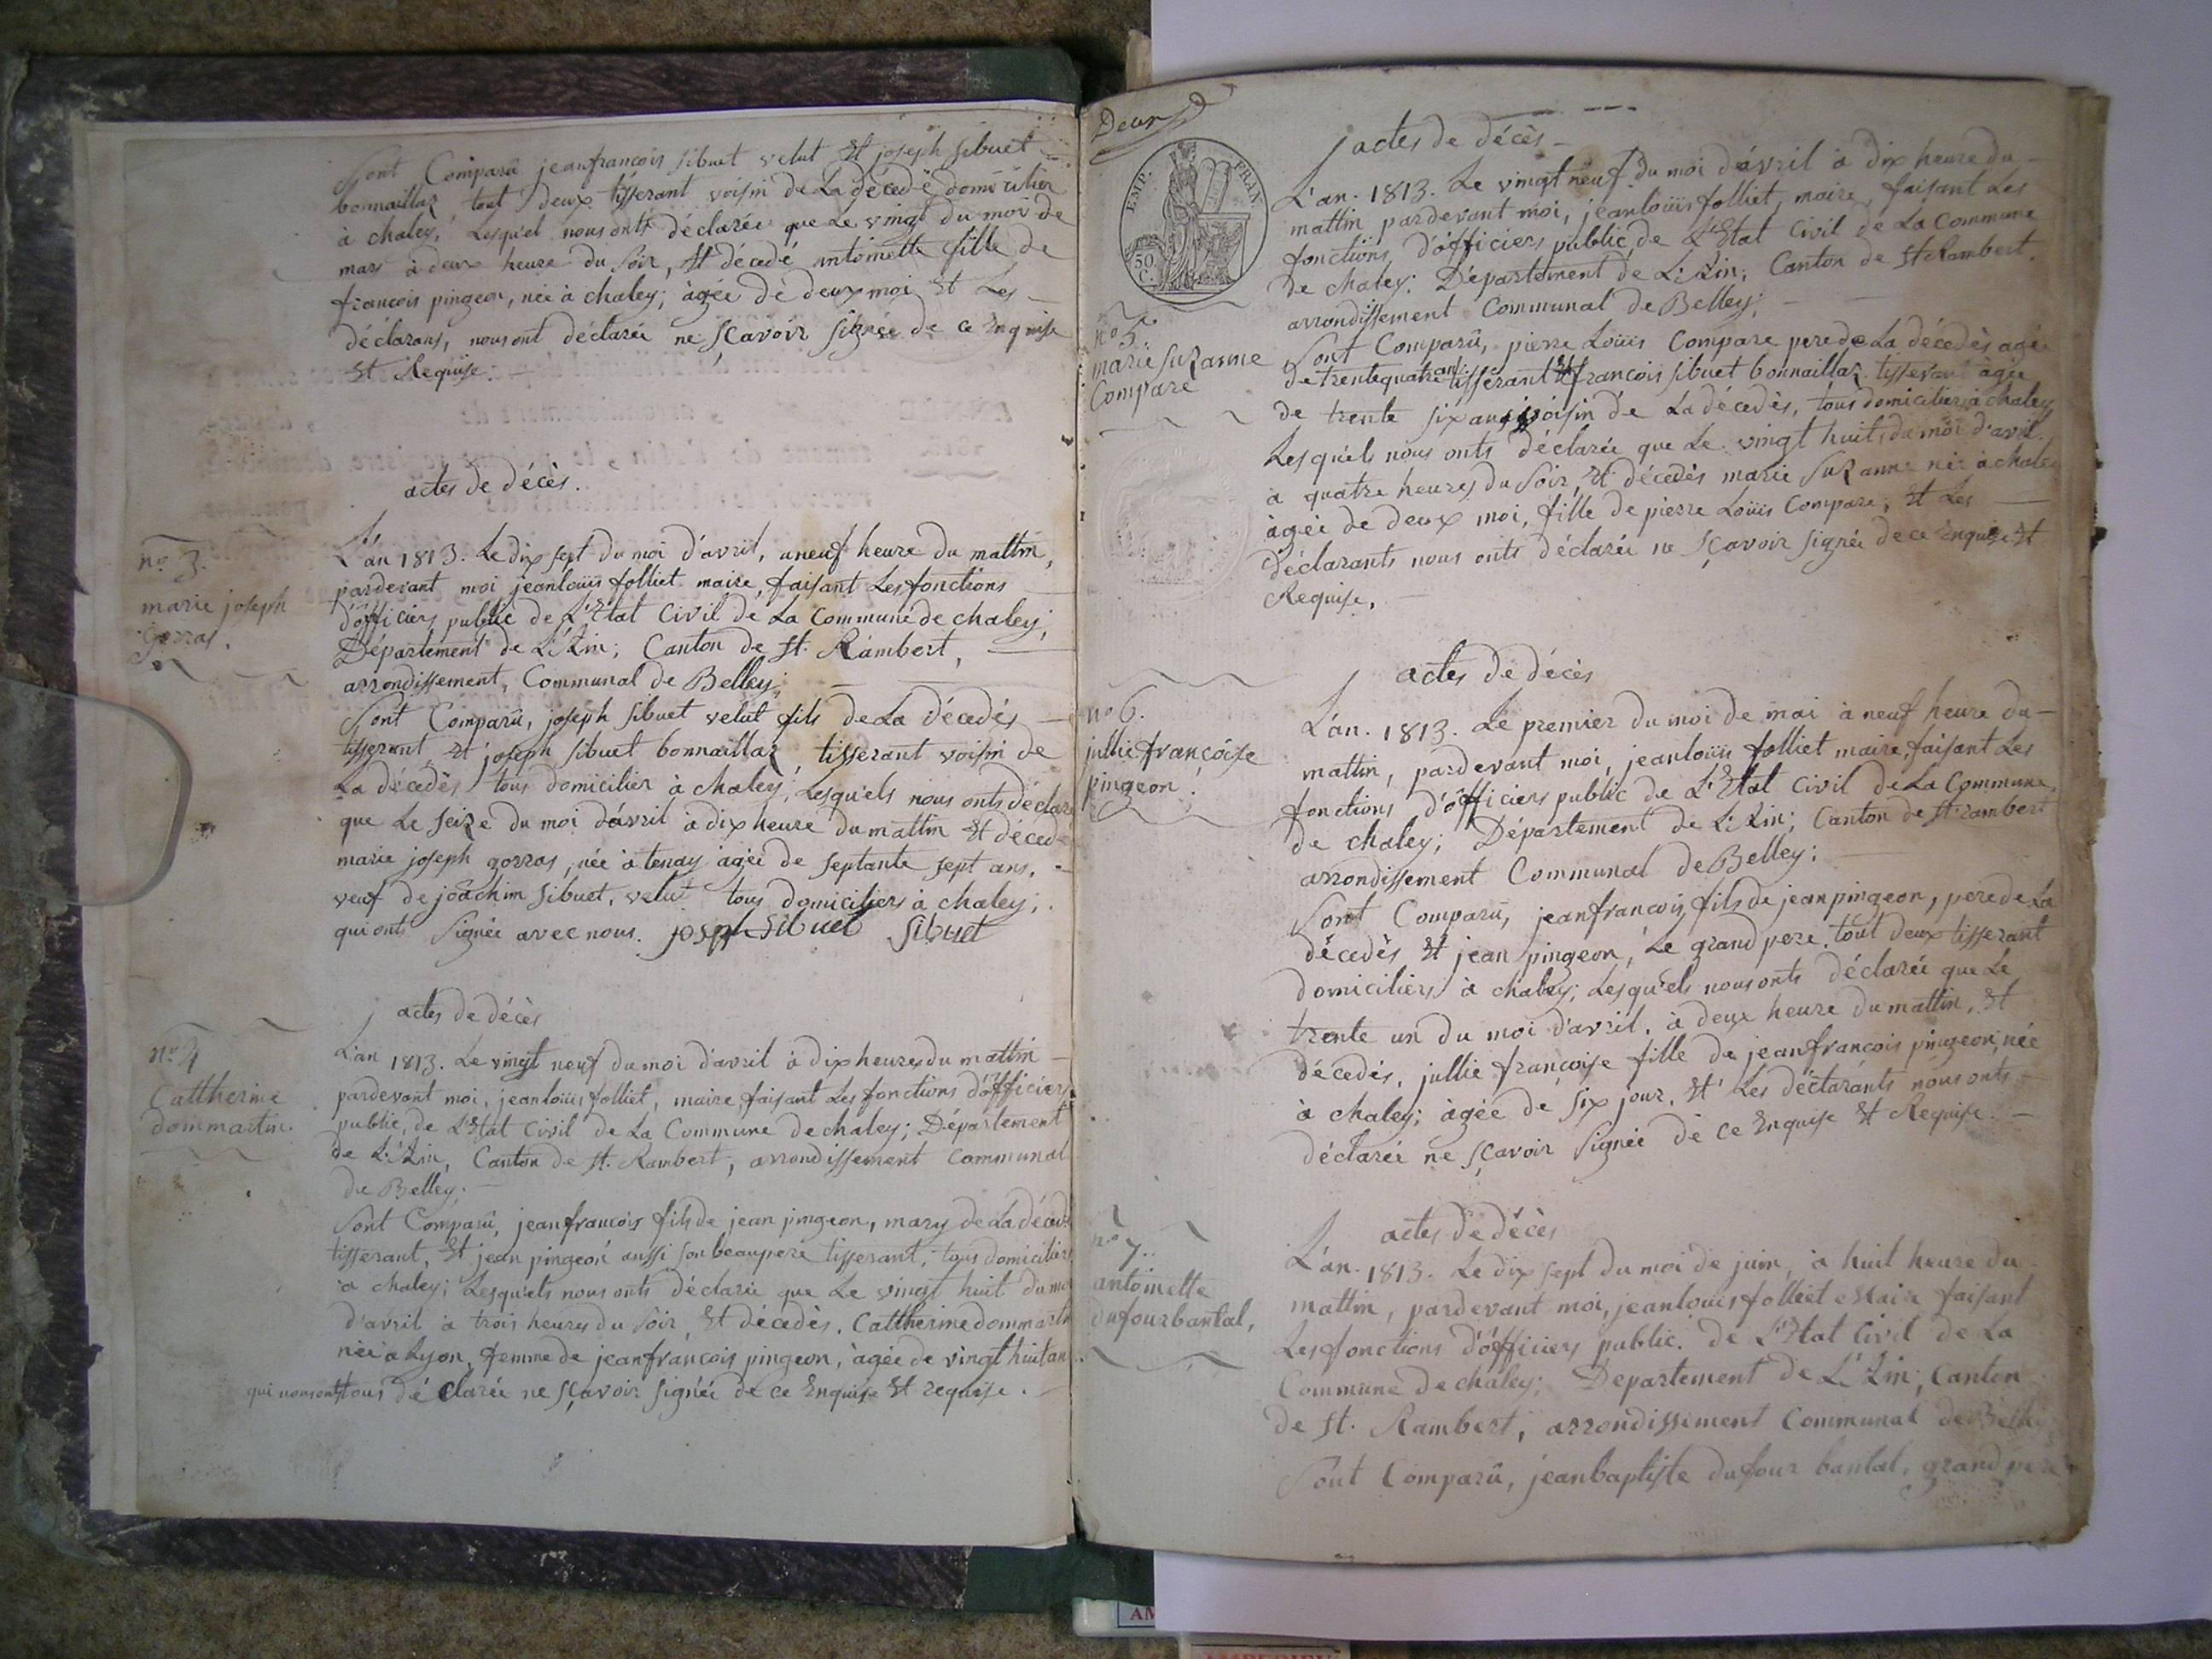 Sont Comparû jeanfrancois sibuet velut Et joseph sibuet
bonnaillaz tout deux tisserant voisin de La décedé domicilier
à chaley, Lesquel nous onts déclarée que Le vingt du moi de
mars à deux heure du soir, Et décedé antoinette fille de
francois pingeon, née à chaley; àgée de deux moi Et Les
déclarans, nous ont déclarée ne sçavoir signée de ce Enquise
Et Requise.
actes de décès.
no. 3.
marie joseph
gorras.
L'an 1813. Le dix sept du moi d'avril, a neuf heure du mattin,
pardevant moi jeanloüis folliet maire, faisant Les fonctions
d'officiers public de L'Etat Civil de La Commune de chaley;
Département de L'Ain; Canton de St. Rambert,
arrondissement, Communal de Belley;
Sont Comparû, joseph sibuet velut fils de La décedés
tisserant, Et joseph sibuet bonnaillaz, tisserant voisin de
La décedès tous domicilier à chaley, Lesqu'els nous onts déclaré
que Le seize du moi d'avril à dix heure du mattin Et décedé
marie joseph gorras, née à tenay àgée de septante sept ans,
veuf de joachim sibuet, velut tous domiciliers à chaley;
qui onts signée avec nous. joseph Sibuet sibuet
actes de décès
no. 4
Cattherine
dommartin.
L'an 1813. Le vingt neuf du moi d'avril à dix heures du mattin
pardevant moi, jeanloüis folliet, maire, faisant Les fonctions d'officiers
public, de L'Etat Civil de La Commune de chaley; Département
de L'Ain, Canton de St. Rambert, arrondissement Communal
de Belley;
Sont Comparû, jeanfrancois fils de jean pingeon, mary de La décedé
tisserant, Et jean pingeon aussi son beaupere tisserant, tous domiciliers
à chaley; Lesqu'els nous onts déclarée que Le vingt huit du moi
d'avril à trois heures du soir, Et décedès, Cattherine dommartin
née à Lyon, femme de jeanfrancois pingeon, àgée de vingt huit an
qui nous ont tous déclarée ne sçavoir signée de ce Enquise Et requise.
Deux
EMP. FRAN.
50 C.
actes de décès
no 5.
marie suzanne
Compare
L'an. 1813. Le vingt neuf du moi d'avril à dix heure du
mattin pardevant moi, jeanloüis folliet, maire, faisant Les
fonctions, d'officiers public, de L'Etat Civil de La Commune
de chaley; Département de L'Ain; Canton de St Rambert.
arrondissement Communal de Belley;
Sont Comparû, pierre Loüis Compare pere de La décedès agé
de trente quatre ans tisserant Et francois sibuet bonnaillaz tisserant àgée
de trente six ans voisin de La décedès, tous domiciliers à chaley
Lesqu'els nous onts déclarée que Le vingt huit du moi d'avril
à quatre heures du soir, Et décedés marie suzanne née à chaley
àgée de deux moi, fille de pierre Loüis Compare; Et Les
déclarants nous onts déclarée ne sçavoir signée de ce Enquise Et
Requise.
actes de décès
no 6.
jullie françoise
pingeon.
L'an. 1813. Le premier du moi de mai à neuf heure du
mattin, pardevant moi, jeanloüis folliet maire, faisant Les
fonctions d'officiers public de L'Etat Civil de La Commune,
de chaley; Département de L'Ain; Canton de St rambert
arrondissement Communal de Belley;
Sont Comparû, jeanfrancois fils de jean pingeon, pere de La
décedès Et jean pingeon, Le grand pere, tout deux tisserant
domiciliers à chaley; Lesqu'els nous onts déclarée que Le
trente un du moi d'avril, à deux heure du mattin, Et
décedés, jullie françoise fille de jeanfrancois pingeon, née
à chaley; àgée de six jour, Et Les déclarants nous onts
déclarée ne sçavoir signée de ce Enquise Et Requise.
actes de décès
no 7.
antoinette
dufour bantal,
L'an. 1813. Le dix sept du moi de juin, à huit heure du
mattin, pardevant moi, jeanlouis folliet Maire faisant
Les fonctions d'officiers public. de L'Etat Civil de La
Commune de chaley; Departement de L'Ain; Canton
de St. Rambert, arrondissement Communal de Belley
Sont Comparû, jeanbaptiste dufour bantal, grand pere